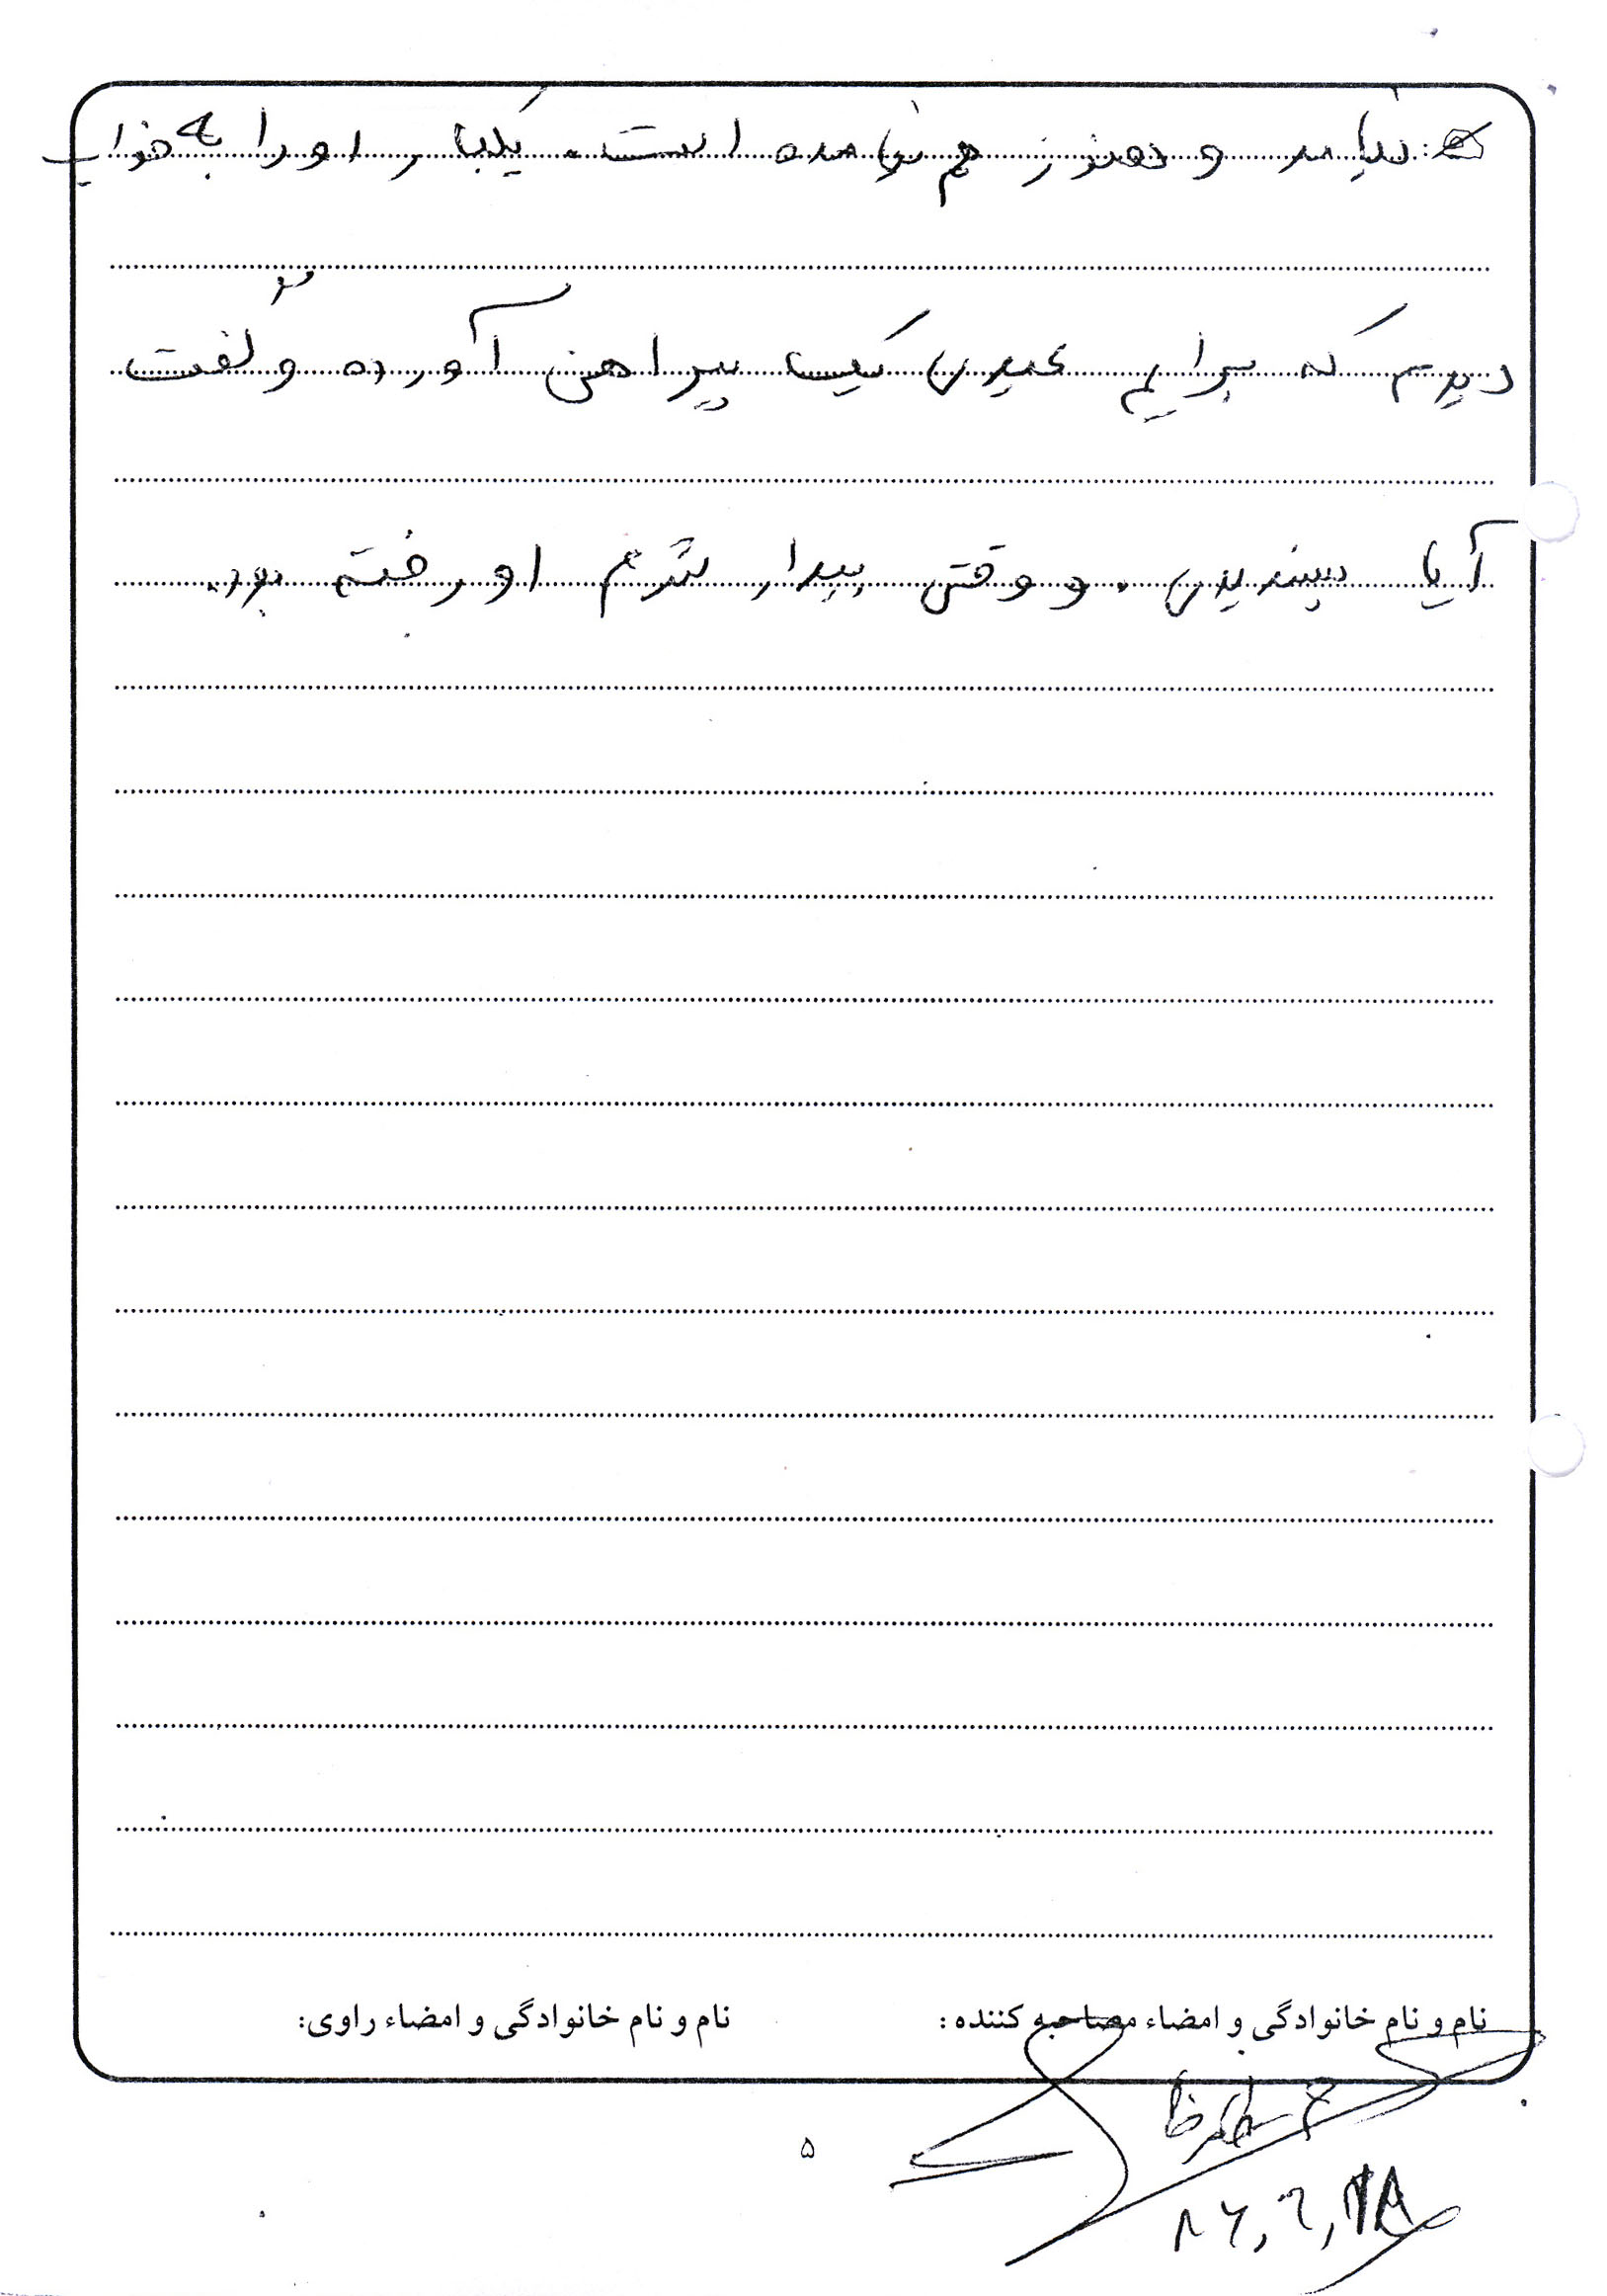 : نیامد و هنوز هم نیامده است. یکبار او را به خواب
دیدم که برایم عیدی یک پیراهن آورده و گفت
آیا پسندیدی. و وقتی بیدار شدم او رفته بود.
نام و نام خانوادگی و امضاء مصاحبه کننده :
نام و نام خانوادگی و امضاء راوی:
۵